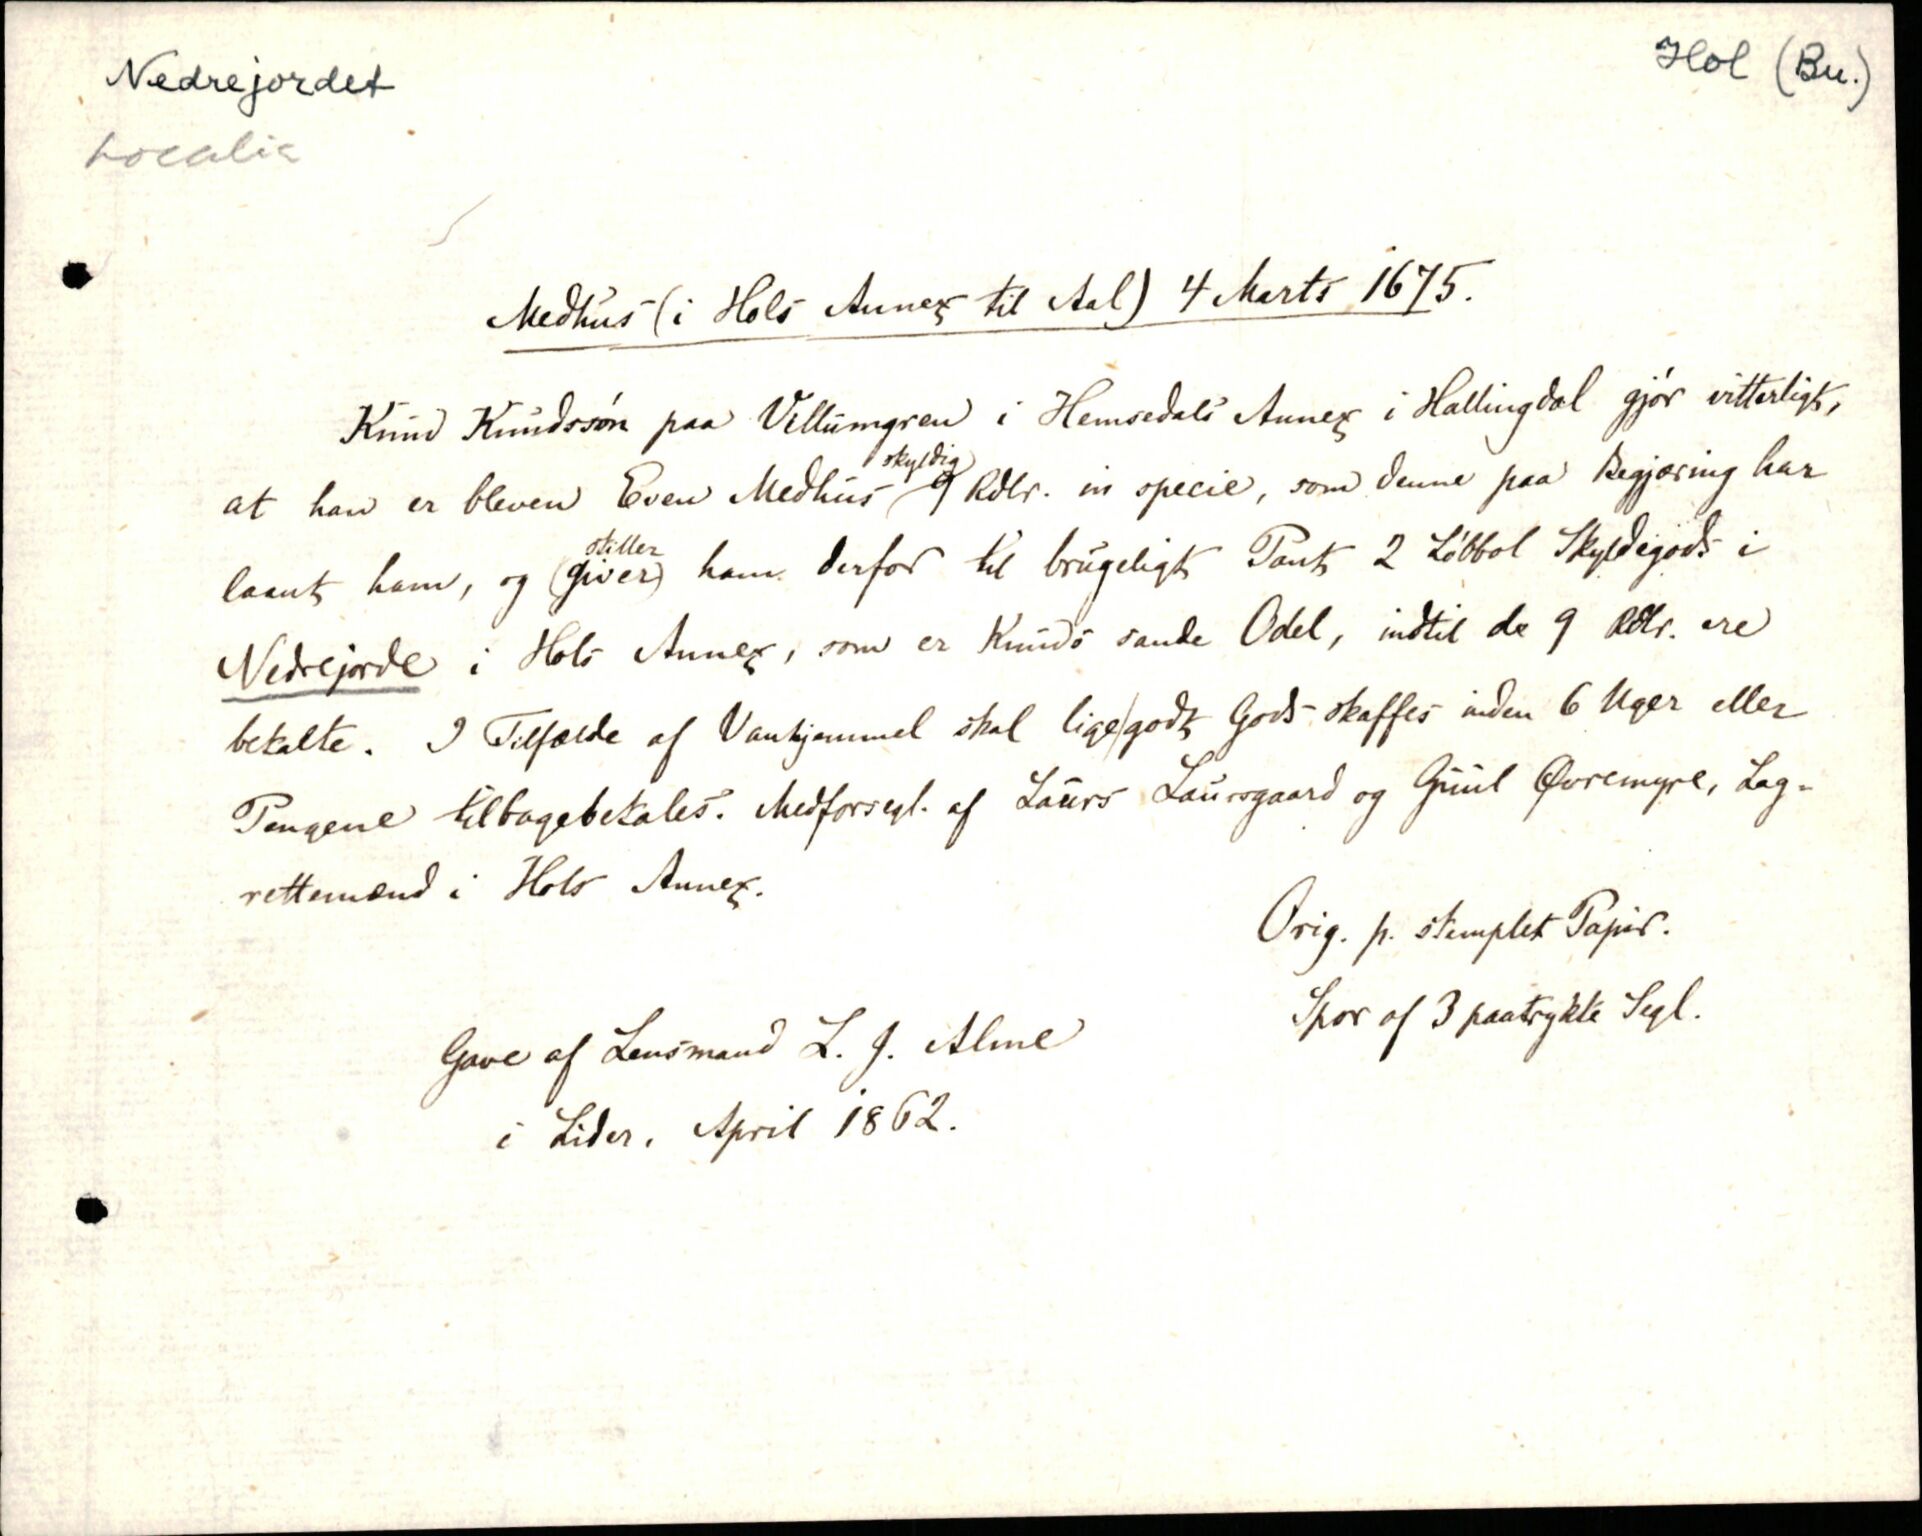 Nedrejordet
Hol (Bu.)
Localia
Medhus (i Hols Annex til Aal) 4 Marts 1675.
Knud Knudssøn paa Villumgren i Hemsedals Annex i Hallingdal gjør vitterligt,
at han er bleven Even Medhus skyldig 9 Rdlr. in specie, som denne paa Begjæring har
laant ham, og stiller (giver) ham derfor til brugeligt Pant 2 Løbbol Skyldegods i
Nedrejorde i Hols Annex, som er Knuds sande Odel, indtil de 9 Rdlr. ere
betalte. I Tilfælde af Vanhjemmel skal lige godt Gods skaffes inden 6 Uger eller
Pengene tilbagebetales. Medforsegl. af Laurs Laursgaard og Guul Øvremyre, Lag-
rettemænd i Hols Annex.
Orig. p. stemplet Papir.
Spor af 3 paatrykte Segl.
Gave af Lensmand L. J. Alme
i Lider. April 1862.